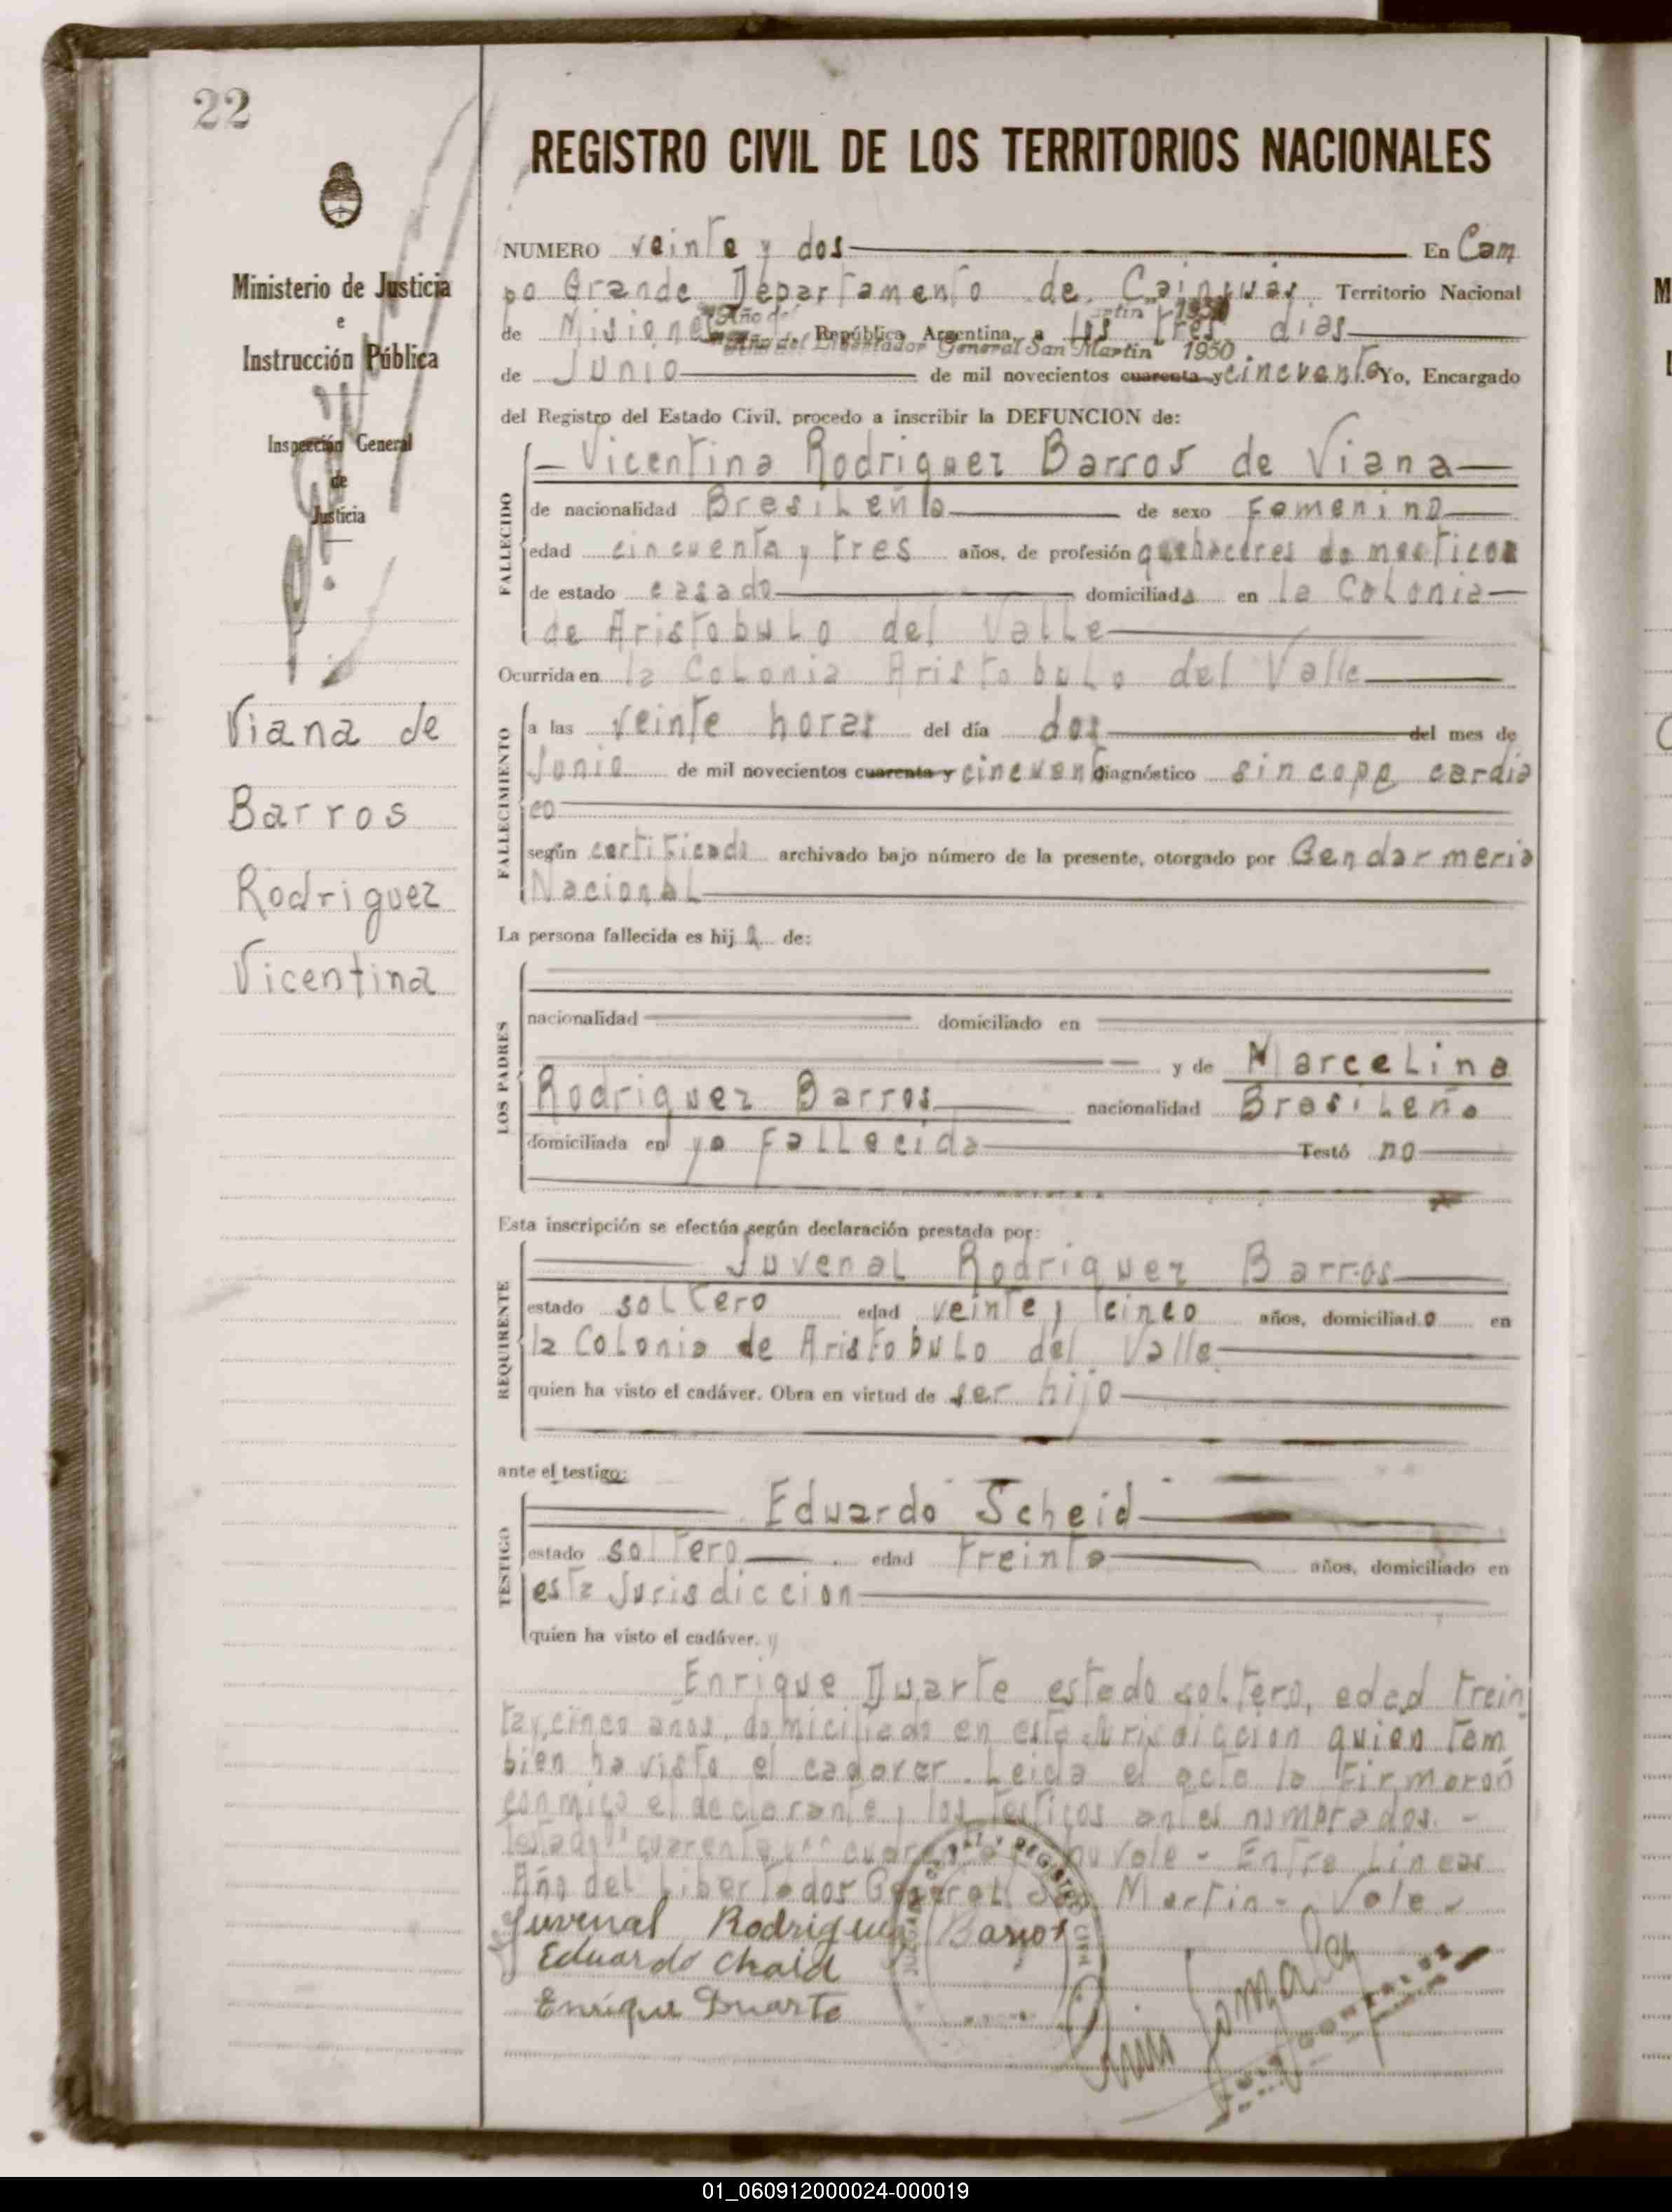 22
Ministerio de Justicia
e
Instrucción Pública
Inspección General
de
Justicia
Viana de
Barros
Rodriguez
Vicentina
REGISTRO CIVIL DE LOS TERRITORIOS NACIONALES
NUMERO veinte y dos En Cam
po Grande Departamento de Cainguás Territorio Nacional
de Misiones República Argentina, a los tres dias
Año del Libertador General San Martin 1950.
de Junio de mil novecientos cuarenta y cincuenta Yo, Encargado
del Registro del Estado Civil, procedo a inscribir la DEFUNCION de:
FALLECIDO
Vicentina Rodriguez Barros de Viana
de nacionalidad Bresileña de sexo Femenino
edad cincuenta y tres años, de profesión quehaceres domesticos
de estado casada domiciliada en la Colonia
de Aristobulo del Valle
Ocurrida en la Colonia Aristobulo del Valle
FALLECIMIENTO
a las veinte horas del día dos del mes de
Junio de mil novecientos cuarenta y cincuenta diagnóstico sincope cardia
co
según certificado archivado bajo número de la presente, otorgado por Gendarmeria
Nacional
La persona fallecida es hija de:
LOS PADRES
nacionalidad domiciliado en
y de Marcelina
Rodriguez Barros nacionalidad Bresileña
domiciliada en ya fallecida Testó no
Esta inscripción se efectúa según declaración prestada por:
REQUIRENTE
Juvenal Rodriguez Barros
estado soltero edad veinte y cinco años, domiciliado en
la Colonia de Aristobulo del Valle
quien ha visto el cadáver. Obra en virtud de ser hijo
ante el testigo:
TESTIGO
Eduardo Scheid
estado soltero edad treinta años, domiciliado en
esta Jurisdiccion
quien ha visto el cadáver. y
Enrique Duarte estado soltero, edad trein
tay cinco años, domiciliado en esta Jurisdiccion quien tam
bien ha visto el cadaver. Leida el acta la firmaron
conmigo el declarante y los testigos antes nombrados. -
Testado "cuarenta y" cuarenta y no vale - Entre Lineas
Año del Libertador General San Martin - Vale -
Juvenal Rodriguez Barros
Eduardo Chaid
Enrique Duarte
01_060912000024-000019